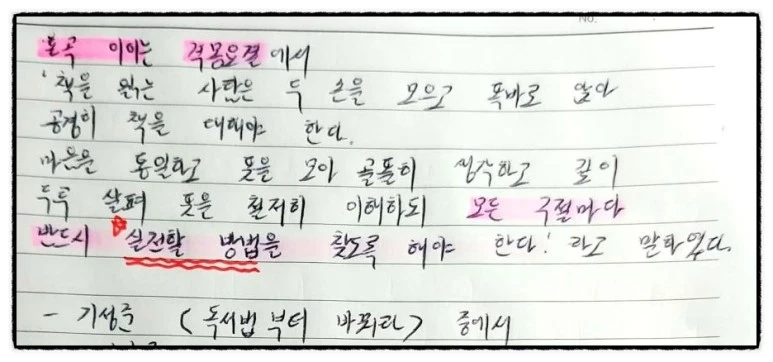 No.
율곡 이이는 격몽요결에서
'책을 읽는 사람은 두 손을 모으고 똑바로 앉아
공경히 책을 대해야 한다.
마음을 통일하고 뜻을 모아 골똘히 생각하고 깊이
두루 살펴 뜻을 철저히 이해하되 모든 구절마다
반드시 실천할 방법을 찾도록 해야 한다.' 라고 말하였다.
- 기성준 <독서법부터 바꿔라> 중에서